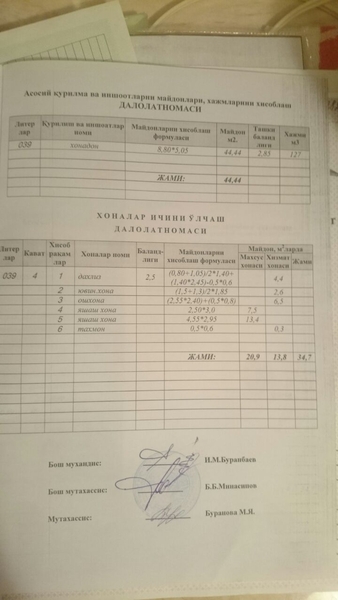 Асосий қурилма ва иншоотларни майдонлари, хажмларини хисоблаш
ДАЛОЛАТНОМАСИ
Литер лар Қурилиш ва иншоотлар номи Майдонларни хисоблаш формуласи Майдон м2. Ташки балан лиги Хажми м3
039 хонадон 8,80*5,05 44,44 2,85 127
ЖАМИ: 44,44
ХОНАЛАР ИЧИНИ ЎЛЧАШ
ДАЛОЛАТНОМАСИ
Литер лар Кават Хисоб рақам лар Хоналар номи Баланд-лиги Майдонларни хисоблаш формуласи Майдон, м²ларда
Махсус хонаси Хизмат хонаси Жами
039 4 1 дахлиз 2,5 (0,80+1,05)/2*1,40+(1,40*2,45)-0,5*0,6 4,4
2 ювин.хона (1,5+1,3)/2*1,85 2,6
3 ошхона (2,55*2,40)+(0,5*0,8) 6,5
4 яшаш хона 2,50*3,0 7,5
5 яшаш хона 4,55*2,95 13,4
6 тахмон 0,5*0,6 0,3
ЖАМИ: 20,9 13,8 34,7
Бош мухандис: И.М.Буранбаев
Бош мутахассис: Б.Б.Минасипов
Мутахассис: Буранова М.Я.